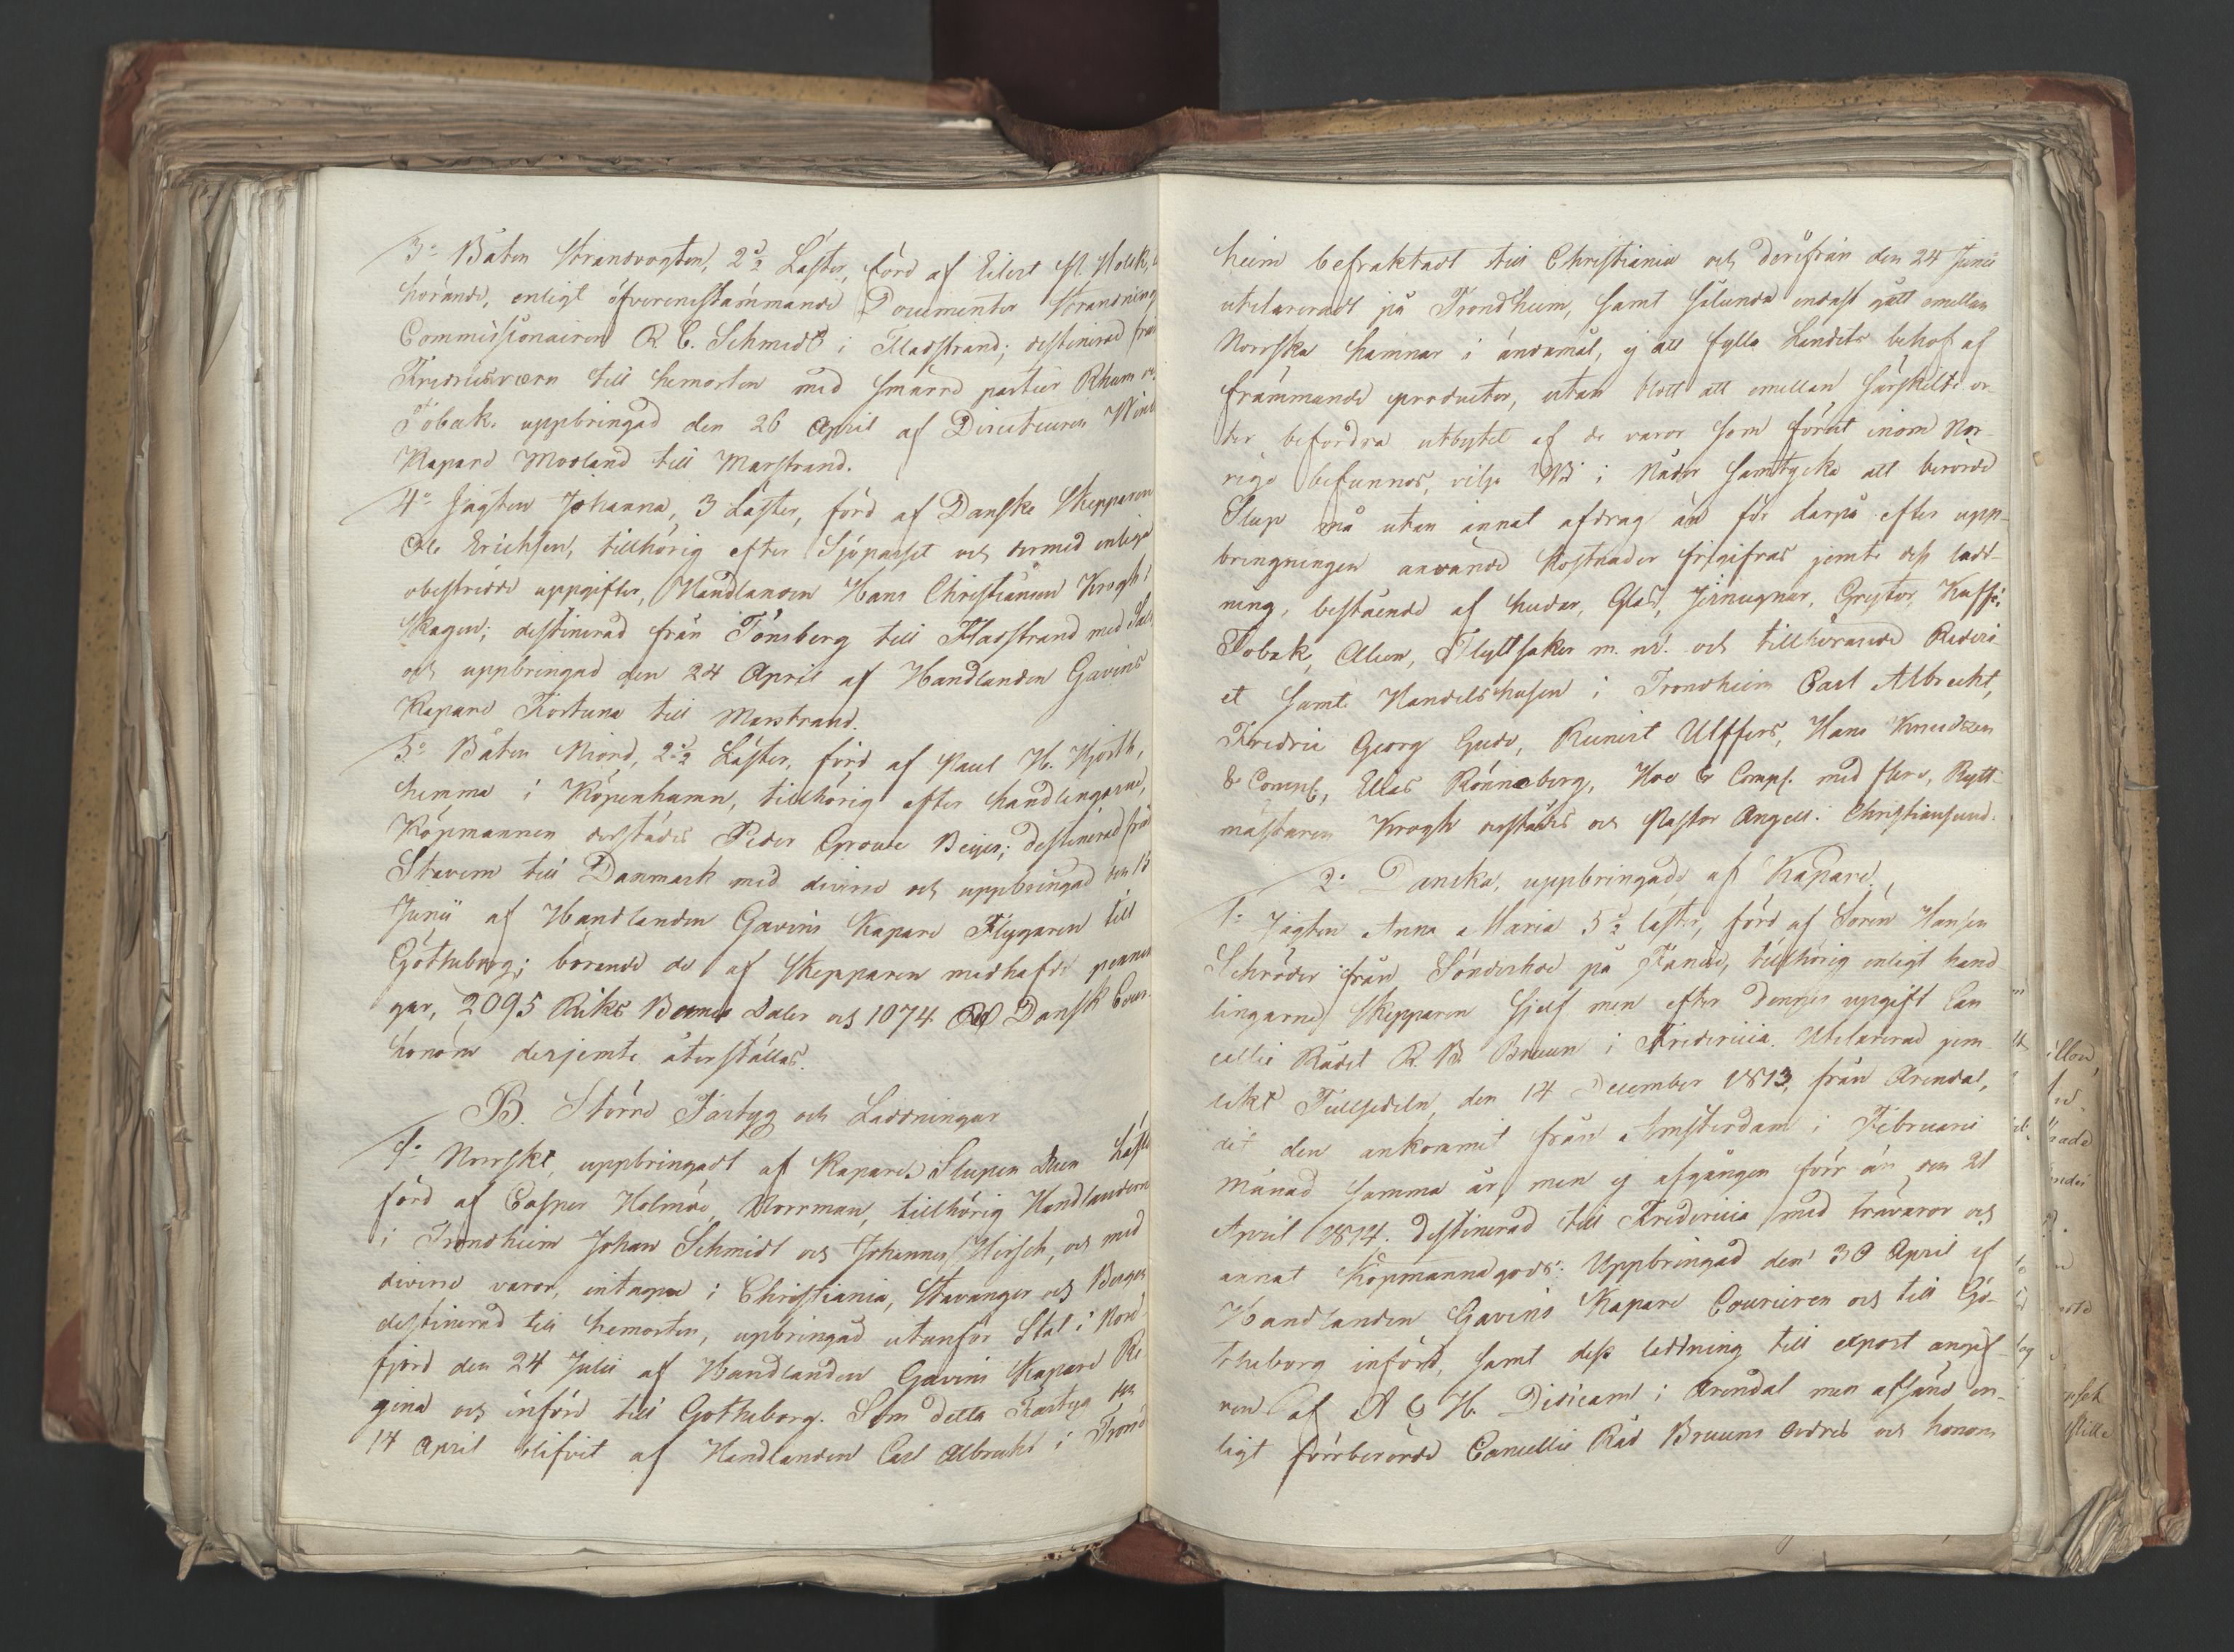 3o Båten Strandvogten, 2 1/2 Läster, förd af Eilert M. Holck,
hörande, enligt öfverensstämmande Documenter Strandnings
Commissionairen R. C. Schmidt i Fladstrand; destinerad från
Fredricsværn till hemorten med smärre partier Rhum och
Tobak, uppbringad den 26 April af Directeuren
Kapare Morland till Marstrand.
4o Jagten Johanna, 3 Läster, förd af Danske Skepparen
Ole Erichsen, tillhörig efter Sjöpasset och dermed enliga
obestridde uppgifter, Handlanden Hans Christiansen Krogh i
Skagen; destinerad från Tönsberg till Fladstrand med
och uppbringad den 24 April af Handlanden Gavins
Kapare Fortuna till Marstrand.
5o Båten Niord, 2 1/2 Läster, förd af Paul H. Hjorth,
hemma i Köpenhamn, tillhörig efter handlingarne,
Köpmannen derstädes Peder Groute Beyer; destinerad från
Stavern till Danmark med diverse och uppbringad den 13
Junii af Handlanden Gavins Kapare Flygaren till
Götheborg; börande de af Skepparen medhafde pennin
gar, 2095 Riks Daler och 1074 Rd Dansk Cour.
honom derjemte återställas.
B. Större Fartyg och Laddningar
1o Norrskt, uppbringadt af Kapare. Slupen Läster
förd af Casper Holmöe, Norrman, tillhörig Handlanderne
i Trondheim Johan Schmidt och Johannes Hirsch, och med
diverse varor, intagne i Christiania, Stavanger och Bergen
destinerad till hemorten, upbringad utanför Stat i Nord
fjord den 24 Julii af Handlanden Gavins Kapare Re
gina och införd till Götheborg. Som detta Fartyg den
14 April blifvit af Handlanden Carl Albrecht i Trond
heim befraktadt till Christiania och derifrån den 24 Junii
utclareradt på Trondheim, samt sålunda endast gått emellan
Norrska hamnar i ändamål, ej att fylla Landets behof af
främmande producter, utan blott att emellan särskilte or-
ter befordra utbytet af de varor som förut inom Nor-
rige befunnos, vilje Wi i Nåder samtycka att berörde
Slup må utan annat afdrag än för därpå efter upp-
bringningen använde kostnader frigifvas jemte dess ladd-
ning, bestående af hudar, Glas, Jernugnar, Grytor, Kaffé,
Tobak, Alun, Flyttsaker m. m. och tillhörande Rederi
et samt Handelshusen i Trondheim Carl Albrecht,
Fredric Georg Gude, Reinert Ulffers, Hans Knudtzen
& Comp., Elias Rönneberg, Hoe & Comp. med flere, Rytt-
mästaren Krogh derstädes och Pastor Angell i Christiansund.
2o Danska, uppbringade af Kapare.
1o Jagten Anna Maria 5 1/2 läster, förd af Sören Hansen
Schröder från Sönderhoe på Fanöe, tillhörig enligt hand
lingarne Skepparen sjelf men efter dennes upgift Can
cellie Rådet R. B. Bruun i Fredericia. Utclarerad jem-
likt Tullsedeln den 14 December 1813, från Arendal,
dit den ankommit från Amsterdam i Februarii
månad samma år, men ej afgången förr än den 21
April 1814. Destinerad till Fredericia med trävaror och
annat Köpmannagods: Uppbringad den 30 April af
Handlanden Gavins Kapare Couriren och till Gö-
theborg införd, samt dess laddning till export angif-
ven af A & H. Dedicam i Arendal men afsänd en-
ligt förrberörde Cancellie Råd Bruuns ordres och honom